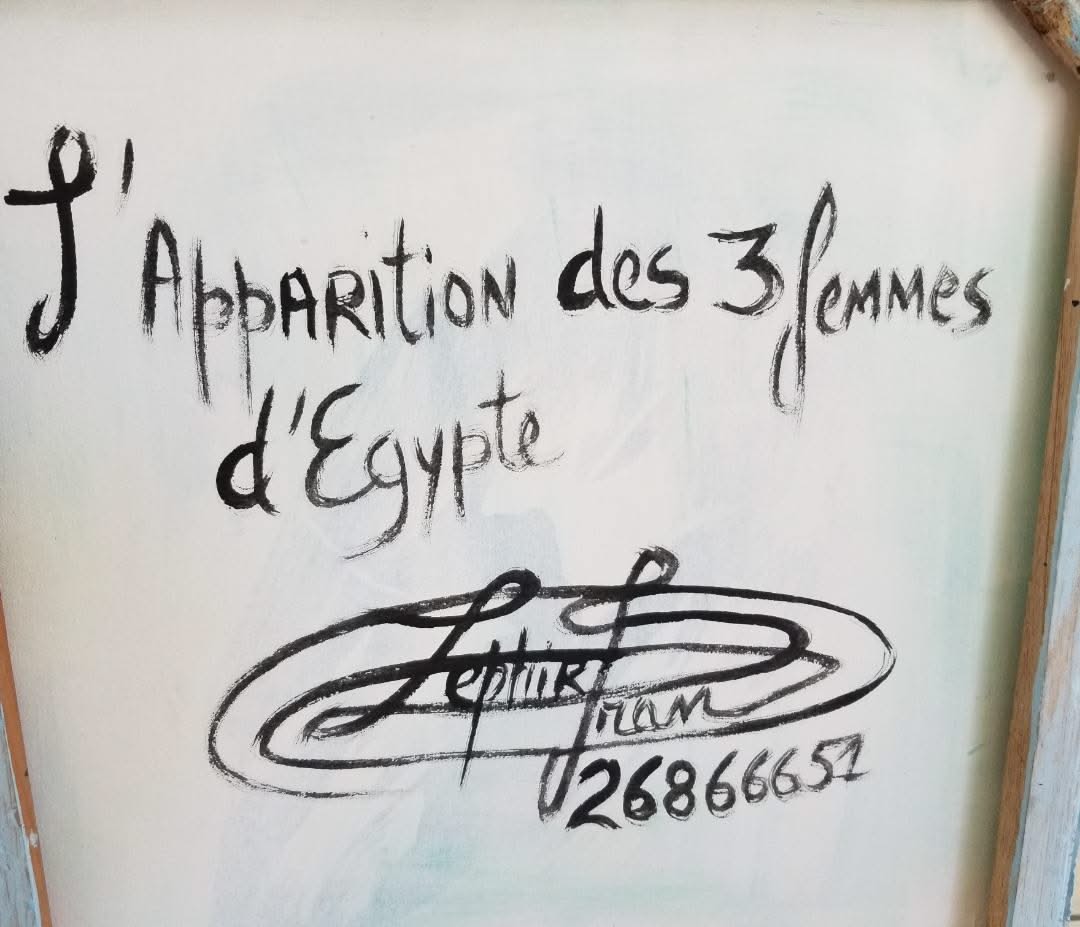 L'Apparition des 3 femmes
d'Egypte
Zephir Fran
26866651